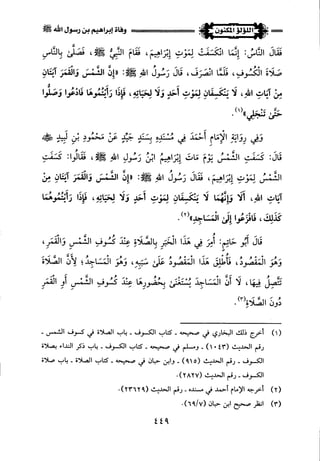 اللؤلؤ المكنون وفاة إبراهيم بن رسول الله ﷺ
فَقَالَ النَّاسُ: إِنَّمَا انْكَسَفَتْ لِمَوْتِ إِبْرَاهِيمَ، فَقَامَ النَّبِيُّ ﷺ، فَصَلَّى بِالنَّاسِ
صَلَاةَ الْكُسُوفِ، فَلَمَّا انْصَرَفَ، قَالَ رَسُولُ اللهِ ﷺ: «إِنَّ الشَّمْسَ وَالْقَمَرَ آيَتَانِ
مِنْ آيَاتِ اللهِ، لَا يَنْكَسِفَانِ لِمَوْتِ أَحَدٍ وَلَا لِحَيَاتِهِ، فَإِذَا رَأَيْتُمُوهُمَا فَادْعُوا وَصَلُّوا
حَتَّى تَنْجَلِيَ»(١).
وَفِي رِوَايَةِ الْإِمَامِ أَحْمَدَ فِي مُسْنَدِهِ بِسَنَدٍ جَيِّدٍ عَنْ مَحْمُودِ بْنِ لَبِيدٍ ﷺ
قَالَ: كَسَفَتِ الشَّمْسُ يَوْمَ مَاتَ إِبْرَاهِيمُ ابْنُ رَسُولِ اللهِ ﷺ، فَقَالُوا: كَسَفَتِ
الشَّمْسُ لِمَوْتِ إِبْرَاهِيمَ، فَقَالَ رَسُولُ اللهِ ﷺ: «إِنَّ الشَّمْسَ وَالْقَمَرَ آيَتَانِ مِنْ
آيَاتِ اللهِ، أَلَا وَإِنَّهُمَا لَا يَنْكَسِفَانِ لِمَوْتِ أَحَدٍ وَلَا لِحَيَاتِهِ، فَإِذَا رَأَيْتُمُوهُمَا
كَذَلِكَ، فَافْزَعُوا إِلَى الْمَسَاجِدِ»(٢).
قَالَ أَبُو حَاتِمٍ: أُمِرَ فِي هَذَا الْخَبَرِ بِالصَّلَاةِ عِنْدَ كُسُوفِ الشَّمْسِ وَالْقَمَرِ،
وَهُوَ الْمَقْصُودُ، فَأُطْلِقَ هَذَا الْمَقْصُودُ عَلَى سَبَبِهِ، وَهُوَ الْمَسَاجِدُ، لِأَنَّ الصَّلَاةَ
تَتَّصِلُ فِيهَا، لَا أَنَّ الْمَسَاجِدَ يُسْتَغْنَى بِحُضُورِهَا عِنْدَ كُسُوفِ الشَّمْسِ أَوِ الْقَمَرِ
دُونَ الصَّلَاةِ(٣).
(١) أخرج ذلك البخاري في صحيحه - كتاب الكسوف - باب الصلاة في كسوف الشمس -
رقم الحديث (١٠٤٣) - ومسلم في صحيحه - كتاب الكسوف - باب ذكر النداء بصلاة
الكسوف - رقم الحديث (٩١٥) - وابن حبان في صحيحه - كتاب الصلاة - باب صلاة
الكسوف - رقم الحديث (٢٨٢٧).
(٢) أخرجه الإمام أحمد في مسنده - رقم الحديث (٢٣٦٢٩).
(٣) انظر صحيح ابن حبان (٦٩/٧).
٤٤٩